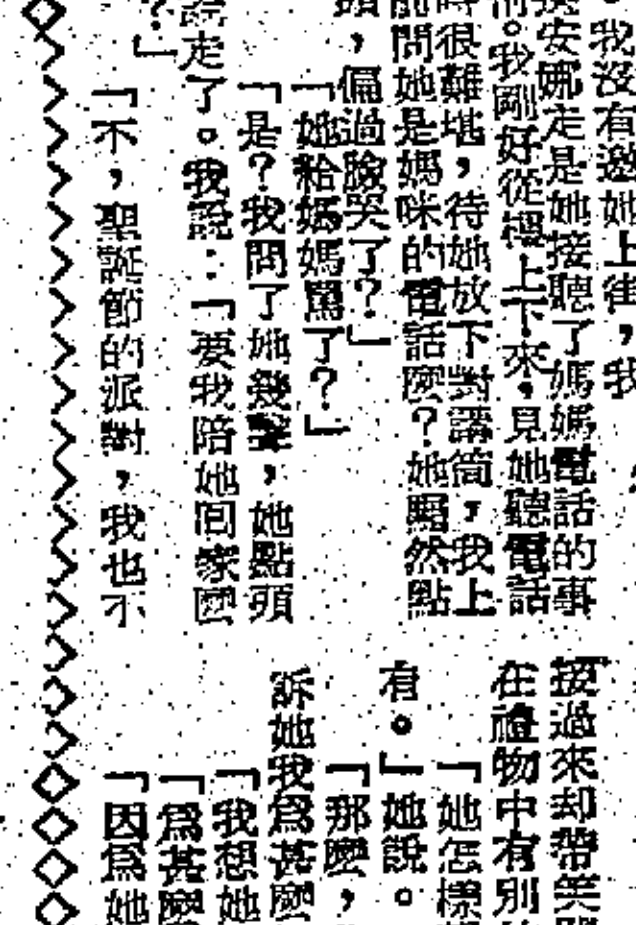 。我沒有邀她上街，我
安娜走是她接聽了媽媽電話的事
。我剛好從樓上下來，見她聽電話
時很難堪，待她放下對講筒，我上
前問她是媽咪的電話麽？她黯然點
頭，偏過臉哭了？」
「她給媽媽罵了？」
「是？我問了她幾聲，她點頭
走了。我說：「要我陪她回家麽
？」
「不，聖誕節的派對，我也不
接過來却帶笑
在禮物中有別
「她怎樣
有。」她說。
「那麽，
訴她我爲甚麽
「我想她
「爲甚麽
「因爲她